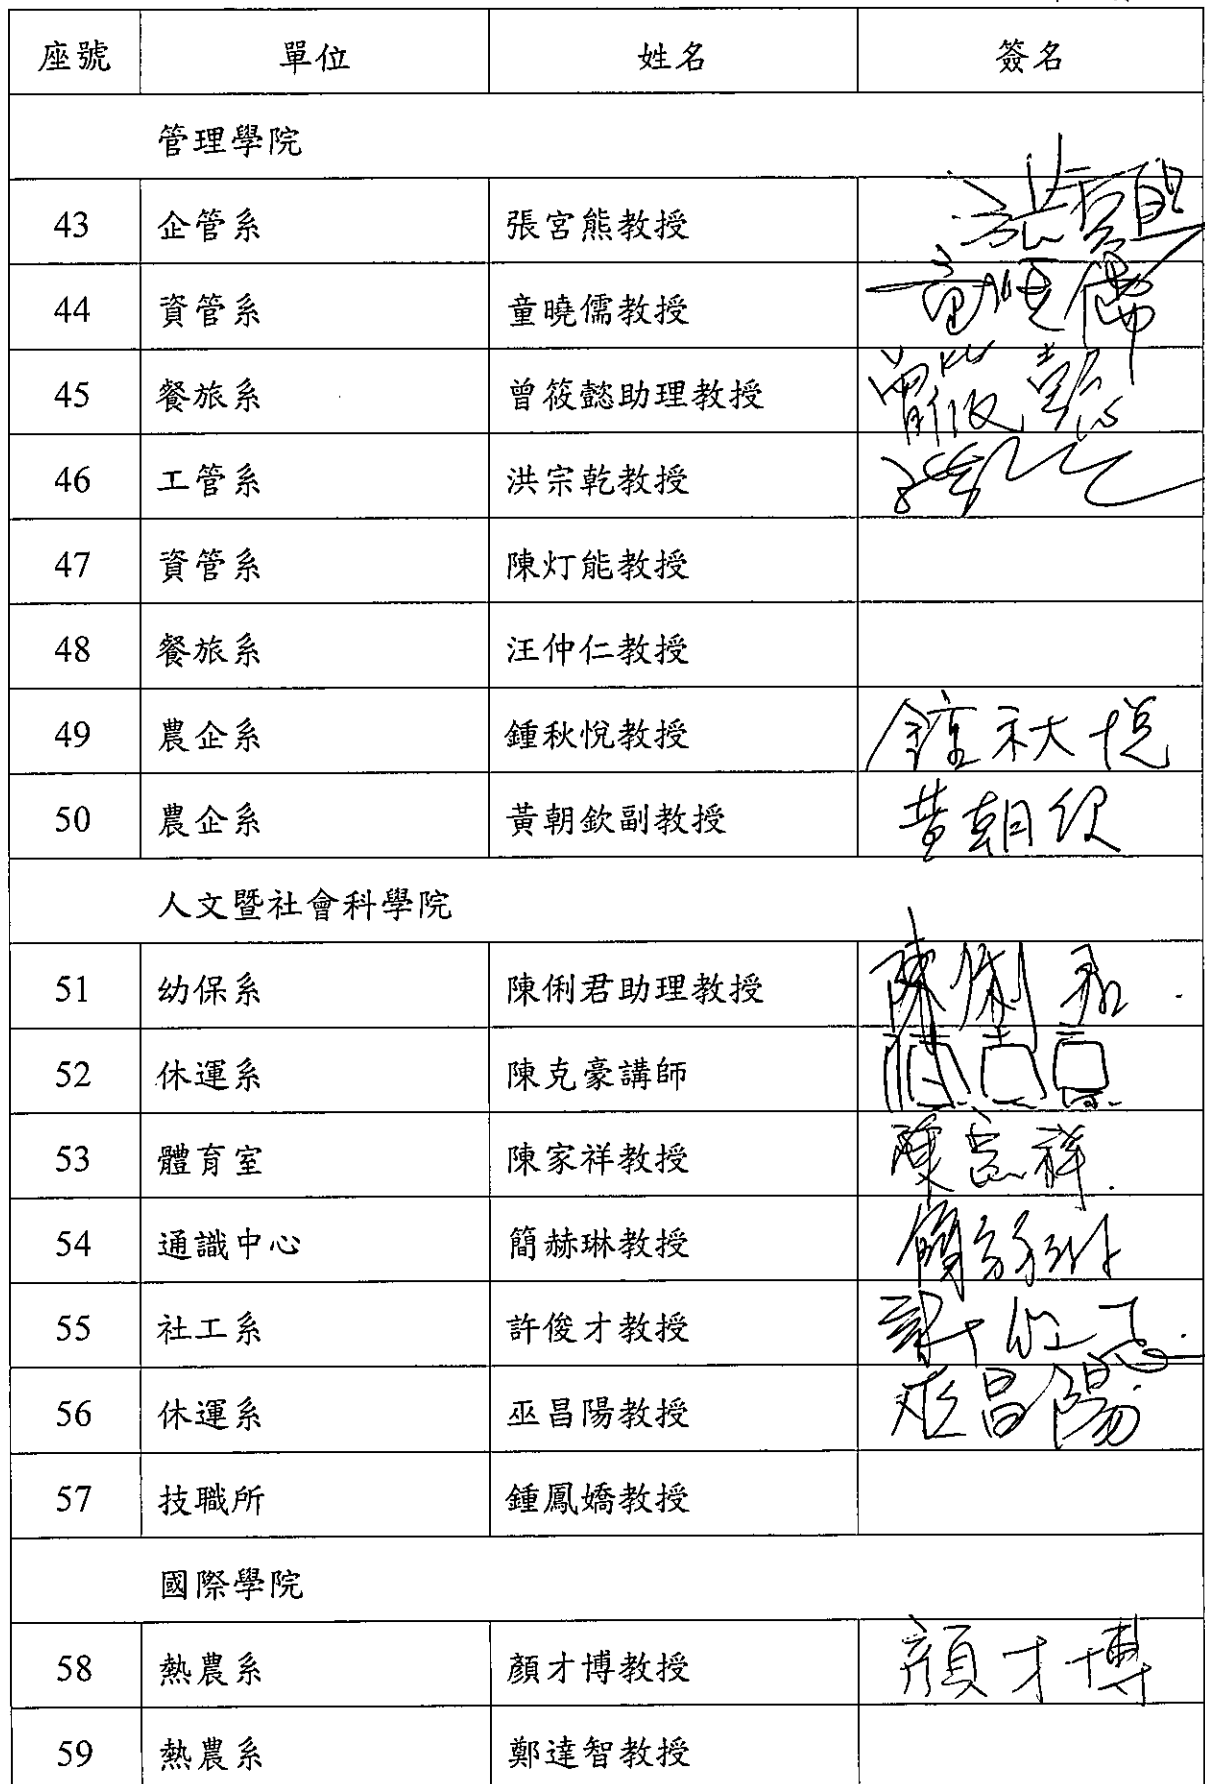 座號 單位 姓名 簽名
管理學院
43 企管系 張宮熊教授
44 資管系 童曉儒教授 童曉儒
45 餐旅系 曾筱懿助理教授 曾筱懿
46 工管系 洪宗乾教授
47 資管系 陳灯能教授
48 餐旅系 汪仲仁教授
49 農企系 鍾秋悅教授 鍾秋悅
50 農企系 黃朝欽副教授 黃朝欽
人文暨社會科學院
51 幼保系 陳俐君助理教授 陳俐君
52 休運系 陳克豪講師
53 體育室 陳家祥教授 陳家祥
54 通識中心 簡赫琳教授 簡赫琳
55 社工系 許俊才教授
56 休運系 巫昌陽教授 巫昌陽
57 技職所 鍾鳳嬌教授
國際學院
58 熱農系 顏才博教授 顏才博
59 熱農系 鄭達智教授